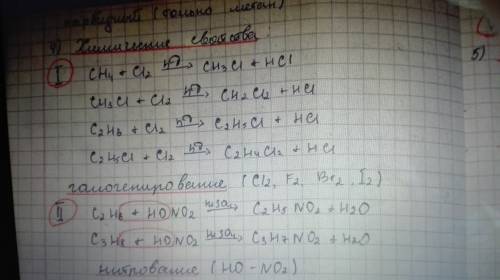 (только метан)
4) Химические свойства.
I CH4 + Cl2 hν→ CH3Cl + HCl
CH3Cl + Cl2 hν→ CH2Cl2 + HCl
C2H6 + Cl2 hν→ C2H5Cl + HCl
5)
C2H5Cl + Cl2 hν→ C2H4Cl2 + HCl
галогенирование (Cl2, F2, Br2, I2)
II C2H6 + HONO2 H2SO4→ C2H5NO2 + H2O
C3H8 + HONO2 H2SO4→ C3H7NO2 + H2O
нитрование (HO - NO2)